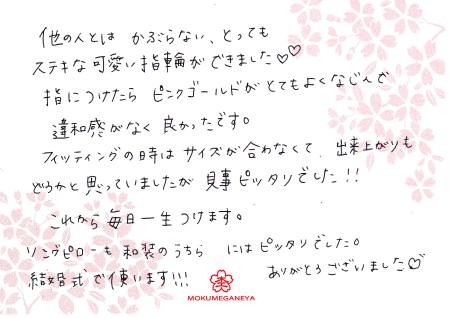 他の人とは かぶらない、とっても
ステキな可愛い指輪ができました♡♡
指につけたら ピンクゴールドがとてもよくなじんで
違和感がなく 良かったです。
フィッティングの時は サイズが合わなくて 出来上がりも
どうかと思っていましたが 見事ピッタリでした!!
これから毎日一生つけます。
リングピローも 和装のうちら にはピッタリでした。
結婚式で使います!!!
ありがとうございました♡
MOKUMEGANEYA